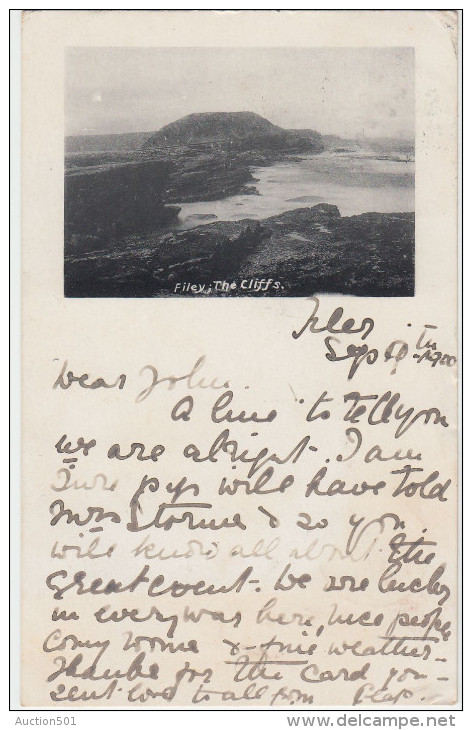 Filey, The Cliffs.
Filey
Sep 1900
Dear John.
A line to tell you
we are alright. I am
sure will have told
Mrs & so you
will know all about the
great event. We are lucky
in every way here, nice people
comy rooms & fine weather
Thanks for the card you
sent love to all from
© Auction501